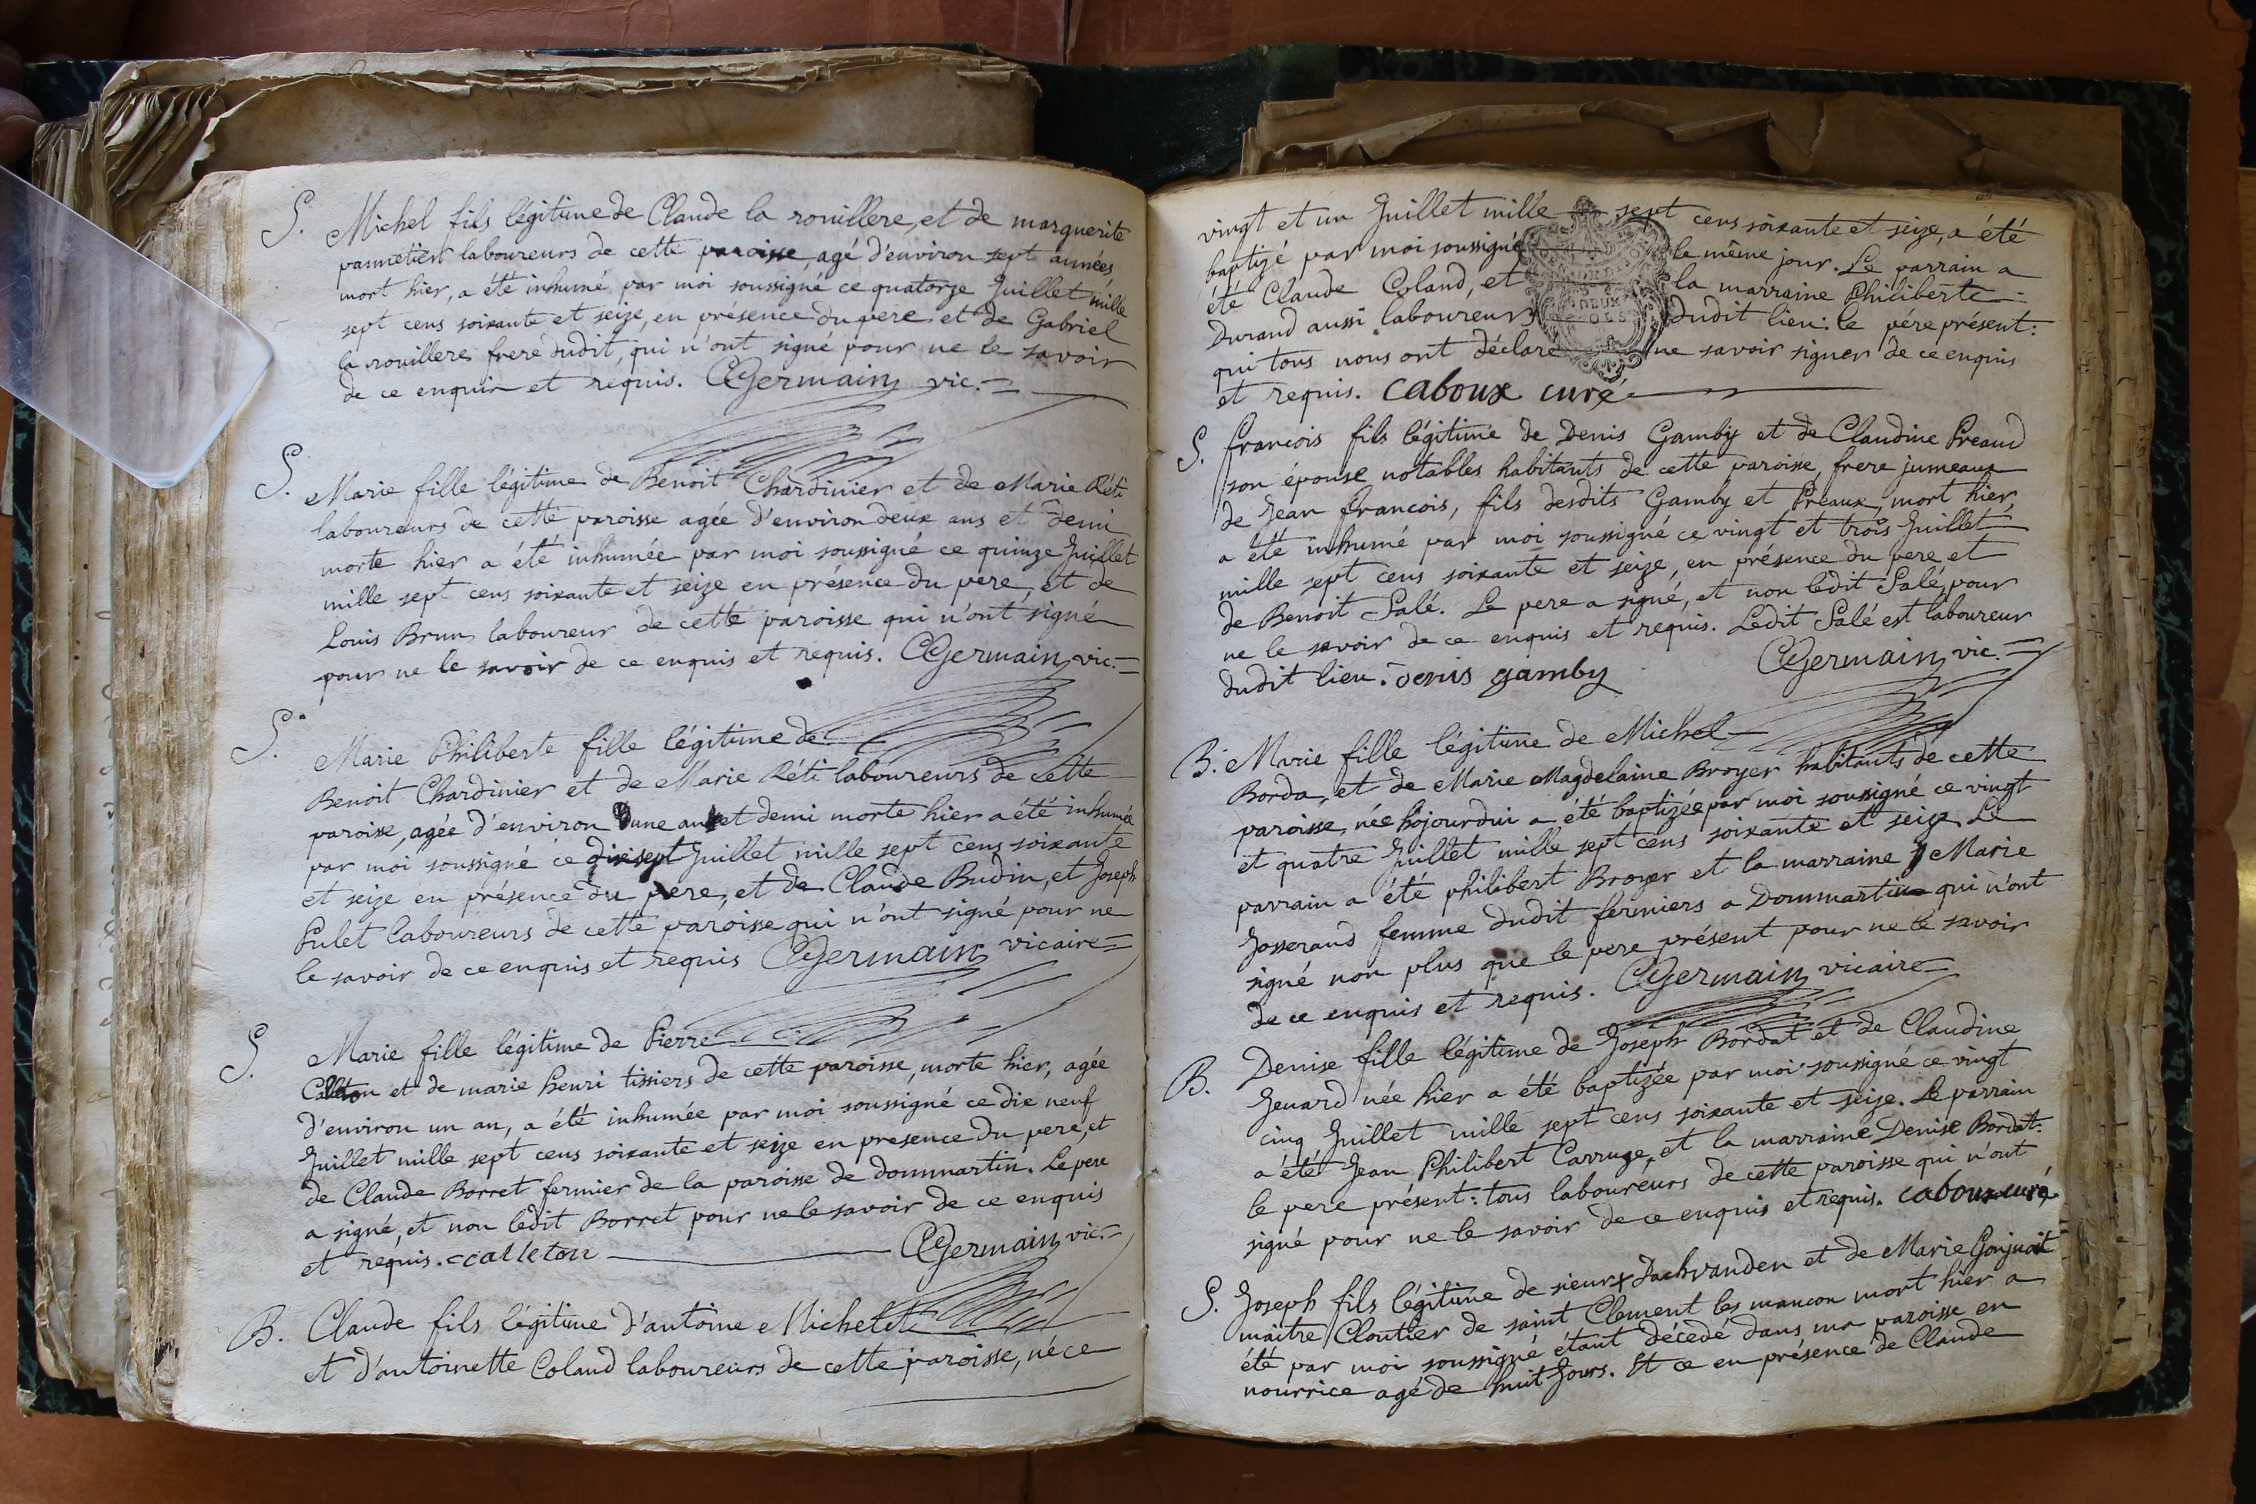 S. Michel fils légitime de Claude la rouillere, et de marguerite
pannetier laboureurs de cette paroisse, agé d'environ sept années
mort hier, a été inhumé par moi soussigné ce quatorze Juillet mille
sept cens soixante et seize, en présence du pere et de Gabriel
la rouillere frere dudit, qui n'ont signé pour ne le savoir
de ce enquis et réquis. CGermain vic.
S. Marie fille légitime de Benoit Chardinier et de Marie Réti
laboureurs de cette paroisse agée d'environ deux ans et demi
morte hier a été inhumée par moi soussigné ce quinze Juillet
mille sept cens soixante et seize en présence du pere, et de
Louis Brun laboureur de cette paroisse qui n'ont signé
pour ne le savoir de ce enquis et requis. CGermain vic.
S. Marie Philiberte fille légitime de
Benoit Chardinier et de Marie Réti laboureurs de cette
paroisse, agée d'environ une an et demi morte hier a été inhumée
par moi soussigné ce dixsept Juillet mille sept cens soixante
et seize en présence du pere, et de Claude Budin, et Joseph
Pulet laboureurs de cette paroisse qui n'ont signé pour ne
le savoir de ce enquis et requis CGermain vicaire
S. Marie fille légitime de Pierre
Calleton et de marie henri tissiers de cette paroisse, morte hier, agée
d'environ un an, a été inhumée par moi soussigné ce dix neuf
Juillet mille sept cens soixante et seize en presence du pere, et
de Claude Borret fermier de la paroisse de dommartin. Le pere
a signé, et non ledit Borret pour ne le savoir de ce enquis
et requis. calleton CGermain vic.
B. Claude fils légitime d'antoine Michelet
et d'antoinette Coland laboureurs de cette paroisse, né ce
vingt et un Juillet mille sept cens soixante et seize, a été
baptizé par moi soussigné le même jour. Le parrain a
été Claude Coland, et la marraine Philiberte
Durand aussi laboureurs dudit lieu: le pére présent:
qui tous nous ont déclaré ne savoir signer de ce enquis
et requis. caboux curé
S. francois fils légitime de Denis Gamby et de Claudine Preaud
son épouse notables habitants de cette paroisse, frere jumeaux
de Jean francois, fils desdits Gamby et Preaux, mort hier
a été inhumé par moi soussigné ce vingt et trois Juillet
mille sept cens soixante et seize, en présence du pere et
de Benoit Salé. Le pere a signé, et non ledit Salé, pour
ne le savoir de ce enquis et requis. Ledit Salé est laboureur
dudit lieu. Denis gamby CGermain vic.
B. Marie fille légitime de Michel
Borda, et de Marie Magdelaine Broyer habitants de cette
paroisse, née hojourdui a été baptizée par moi soussigné ce vingt
et quatre Juillet mille sept cens soixante et seize. Le
parrain a été philibert Broyer et la marraine Marie
Josserand femme dudit fermiers a Dommartin qui n'ont
signé non plus que le pere présent pour ne le savoir
de ce enquis et requis. CGermain vicaire
B. Denise fille légitime de Joseph Bordat et de Claudine
Genard née hier a été baptizée par moi soussigné ce vingt
cinq Juillet mille sept cens soixante et seize. Le parrain
a été Jean Philibert Carruge, et la marraine Denise Bordat:
le pere présent: tous laboureurs de cette paroisse qui n'ont
signé pour ne le savoir de ce enquis et requis. caboux curé
S. Joseph fils légitime de sieur et de Marie
maitre Cloutier de saint Clement les mancon mort hier a
été par moi soussigné étant décedé dans ma paroisse en
nourrice agé de huit Jours. Et ce en présence de Claude